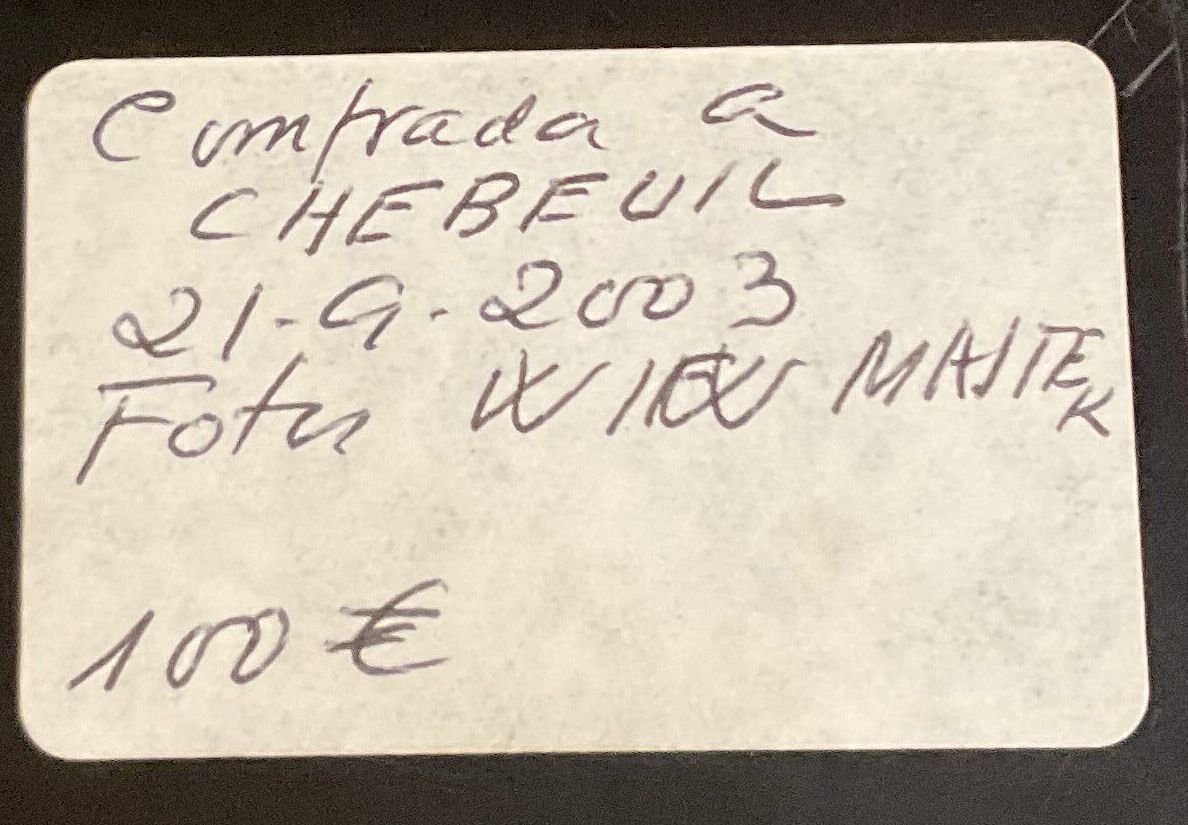 Comprada a
CHEBEUIL
21-9-2003
Fotos WIEW MASTER
100 €